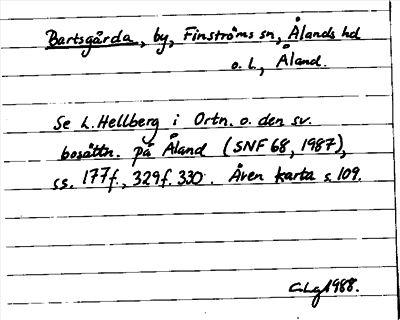 Bartsgårda, by, Finströms sn, Ålands hd
o. l., Åland.
Se L. Hellberg i Ortn. o. den sv.
bosättn. på Åland (SNF 68, 1987),
ss. 177f., 329f. 330. Även karta s. 109.
CLg 1988.